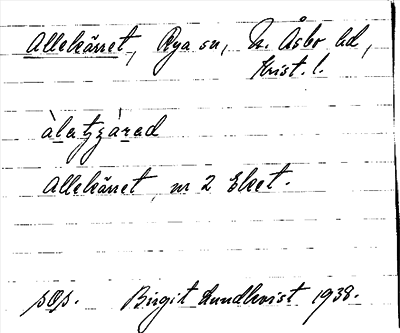 Allekärret, Rya sn, N. Åsbo hd,
Krist. l.
àlatʒʒárad
Allekärret, nr 2 Eket.
sOs. Birgit Lundkvist 1938.